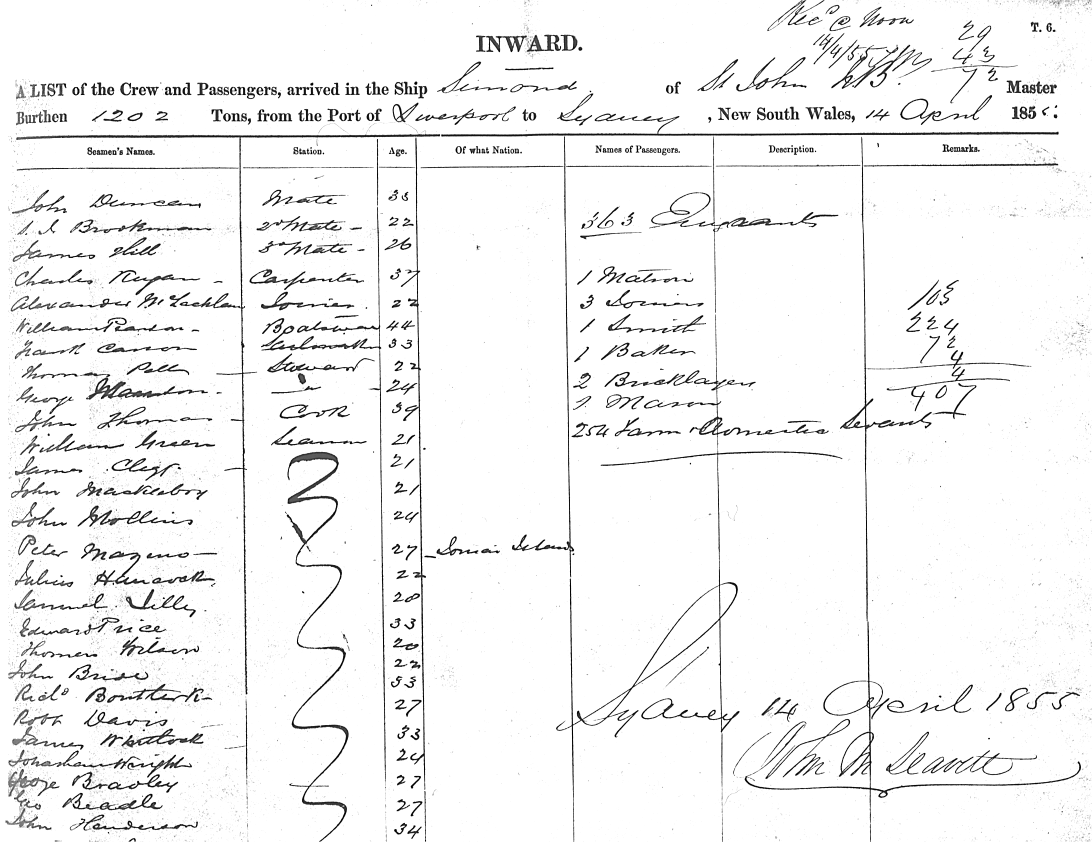 INWARD.
Rec'd @ Noon
14/4/55
T. 6.
29
43
72
A LIST of the Crew and Passengers, arrived in the Ship Simonds of St John NB. Master
Burthen 1202 Tons, from the Port of Liverpool to Sydney, New South Wales, 14 April 1855.
Seamen's Names. Station. Age. Of what Nation. Names of Passengers. Description. Remarks.
John Duncan Mate 33
Brookman 2d Mate - 22 363 Emigrants
James Hill 3d Mate - 26
Charles - Carpenter 37 1 Matron
Alexander McLachlan Joiner 22 3 Joiners 103
William Pearson - Boatswain 44 1 Smith 224
Frank Carson 33 1 Baker 72
Thomas Steward 22 4
George - " - 24 2 Bricklayers 4
John Thomas - Cook 39 1 Mason 407
William Green Seaman 21 254 Farm & Domestic Servants
James Clegg 21
John 21
John Mollins 24
Peter 27 Islands
Julius Hancock 22
Samuel Lilly 28
Edward Price 33
Thomas Wilson 20
John Bride 22
Richd 33
Robt Davis 27
James Whitlock 33
Jonathan Wright 24
George Bradley 27
Geo Beadle 27
John Henderson 34
Sydney 14 April 1855
John M Leavitt